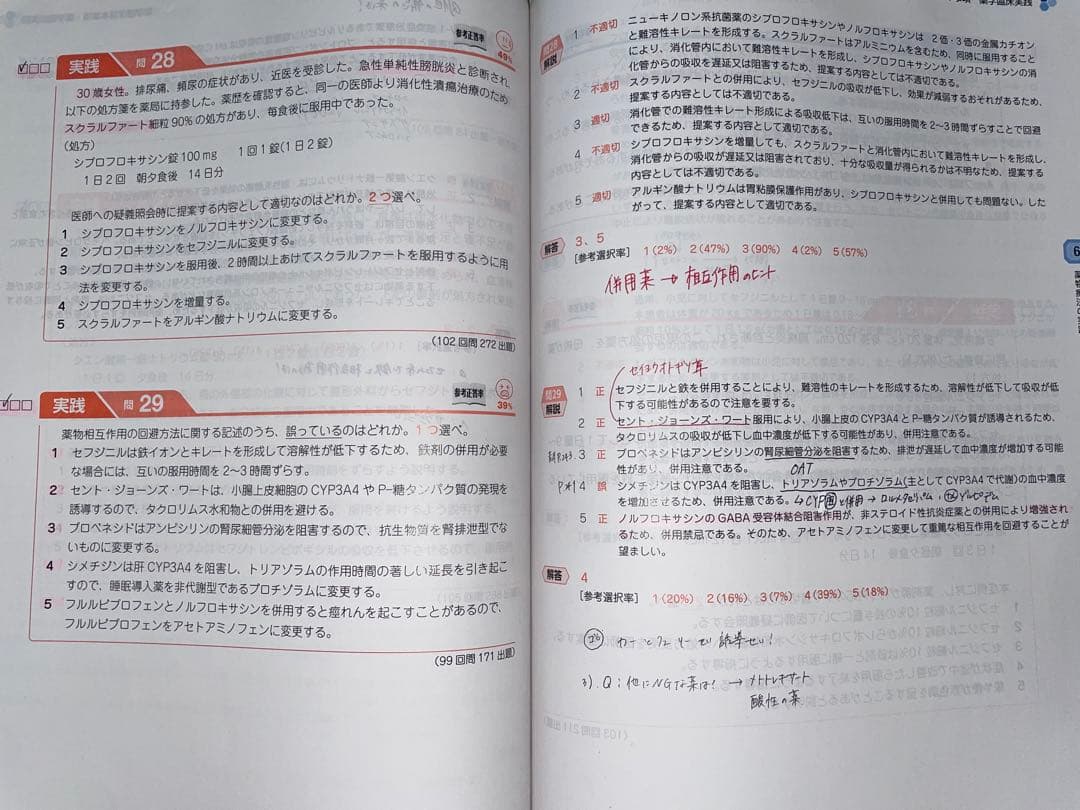 参考正答率
49%
実践 問 28
30歳女性。排尿痛、頻尿の症状があり、近医を受診した。急性単純性膀胱炎と診断され、
以下の処方箋を薬局に持参した。薬歴を確認すると、同一の医師より消化性潰瘍治療のため
スクラルファート細粒90%の処方があり、毎食後に服用中であった。
(処方)
シプロフロキサシン錠100mg 1回1錠(1日2錠)
1日2回 朝夕食後 14日分
医師への疑義照会時に提案する内容として適切なのはどれか。2つ選べ。
1 シプロフロキサシンをノルフロキサシンに変更する。
2 シプロフロキサシンをセフジニルに変更する。
3 シプロフロキサシンを服用後、2時間以上あけてスクラルファートを服用するように用
法を変更する。
4 シプロフロキサシンを増量する。
5 スクラルファートをアルギン酸ナトリウムに変更する。
(102回問272出題)
参考正答率
39%
実践 問 29
薬物相互作用の回避方法に関する記述のうち、誤っているのはどれか。1つ選べ。
1 セフジニルは鉄イオンとキレートを形成して溶解性が低下するため、鉄剤の併用が必要
な場合には、互いの服用時間を2〜3時間ずらす。
2 セント・ジョーンズ・ワートは、小腸上皮細胞のCYP3A4やP-糖タンパク質の発現を
誘導するので、タクロリムス水和物との併用を避ける。
3 プロベネシドはアンピシリンの腎尿細管分泌を阻害するので、抗生物質を腎排泄型でな
いものに変更する。
4 シメチジンは肝CYP3A4を阻害し、トリアゾラムの作用時間の著しい延長を引き起こ
すので、睡眠導入薬を非代謝型であるブロチゾラムに変更する。
5 フルルビプロフェンとノルフロキサシンを併用すると痙れんを起こすことがあるので、
フルルビプロフェンをアセトアミノフェンに変更する。
(99回問171出題)
薬学臨床実践
問28
解説
1 不適切 ニューキノロン系抗菌薬のシプロフロキサシンやノルフロキサシンは 2価・3価の金属カチオン
と難溶性キレートを形成する。スクラルファートはアルミニウムを含むため、同時に服用すること
により、消化管内において難溶性キレートを形成し、シプロフロキサシンやノルフロキサシンの消
化管からの吸収を遅延又は阻害するため、提案する内容としては不適切である。
2 不適切 スクラルファートとの併用により、セフジニルの吸収が低下し、効果が減弱するおそれがあるため、
提案する内容としては不適切である。
3 適切 消化管での難溶性キレート形成による吸収低下は、互いの服用時間を2〜3時間ずらすことで回避
できるため、提案する内容として適切である。
4 不適切 シプロフロキサシンを増量しても、スクラルファートと消化管内において難溶性キレートを形成し、
消化管からの吸収が遅延又は阻害されており、十分な吸収量が得られるかは不明なため、提案する
内容としては不適切である。
5 適切 アルギン酸ナトリウムは胃粘膜保護作用があり、シプロフロキサシンと併用しても問題ない。した
がって、提案する内容として適切である。
解答 3、5
[参考選択率] 1(2%) 2(47%) 3(90%) 4(2%) 5(57%)
併用薬→相互作用のヒント
6
セイヨウオトギリ草
問29
解説
1 正 セフジニルと鉄を併用することにより、難溶性のキレートを形成するため、溶解性が低下して吸収が低
下する可能性があるので注意を要する。
2 正 セント・ジョーンズ・ワート服用により、小腸上皮のCYP3A4とP-糖タンパク質が誘導されるため、
タクロリムスの吸収が低下し血中濃度が低下する可能性があり、併用注意である。
3 正 プロベネシドはアンピシリンの腎尿細管分泌を阻害するため、排泄が遅延して血中濃度が増加する可能
性があり、併用注意である。
OAT
4 誤 シメチジンはCYP3A4を阻害し、トリアゾラムやブロチゾラム(主としてCYP3A4で代謝)の血中濃度
を増加させるため、併用注意である。
5 正 ノルフロキサシンのGABA受容体結合阻害作用が、非ステロイド性抗炎症薬との併用により増強され
るため、併用禁忌である。そのため、アセトアミノフェンに変更して重篤な相互作用を回避することが
望ましい。
解答 4
[参考選択率] 1(20%) 2(16%) 3(7%) 4(39%) 5(18%)
3). Q:他にNGな薬は!→メトトレキサート
酸性の薬